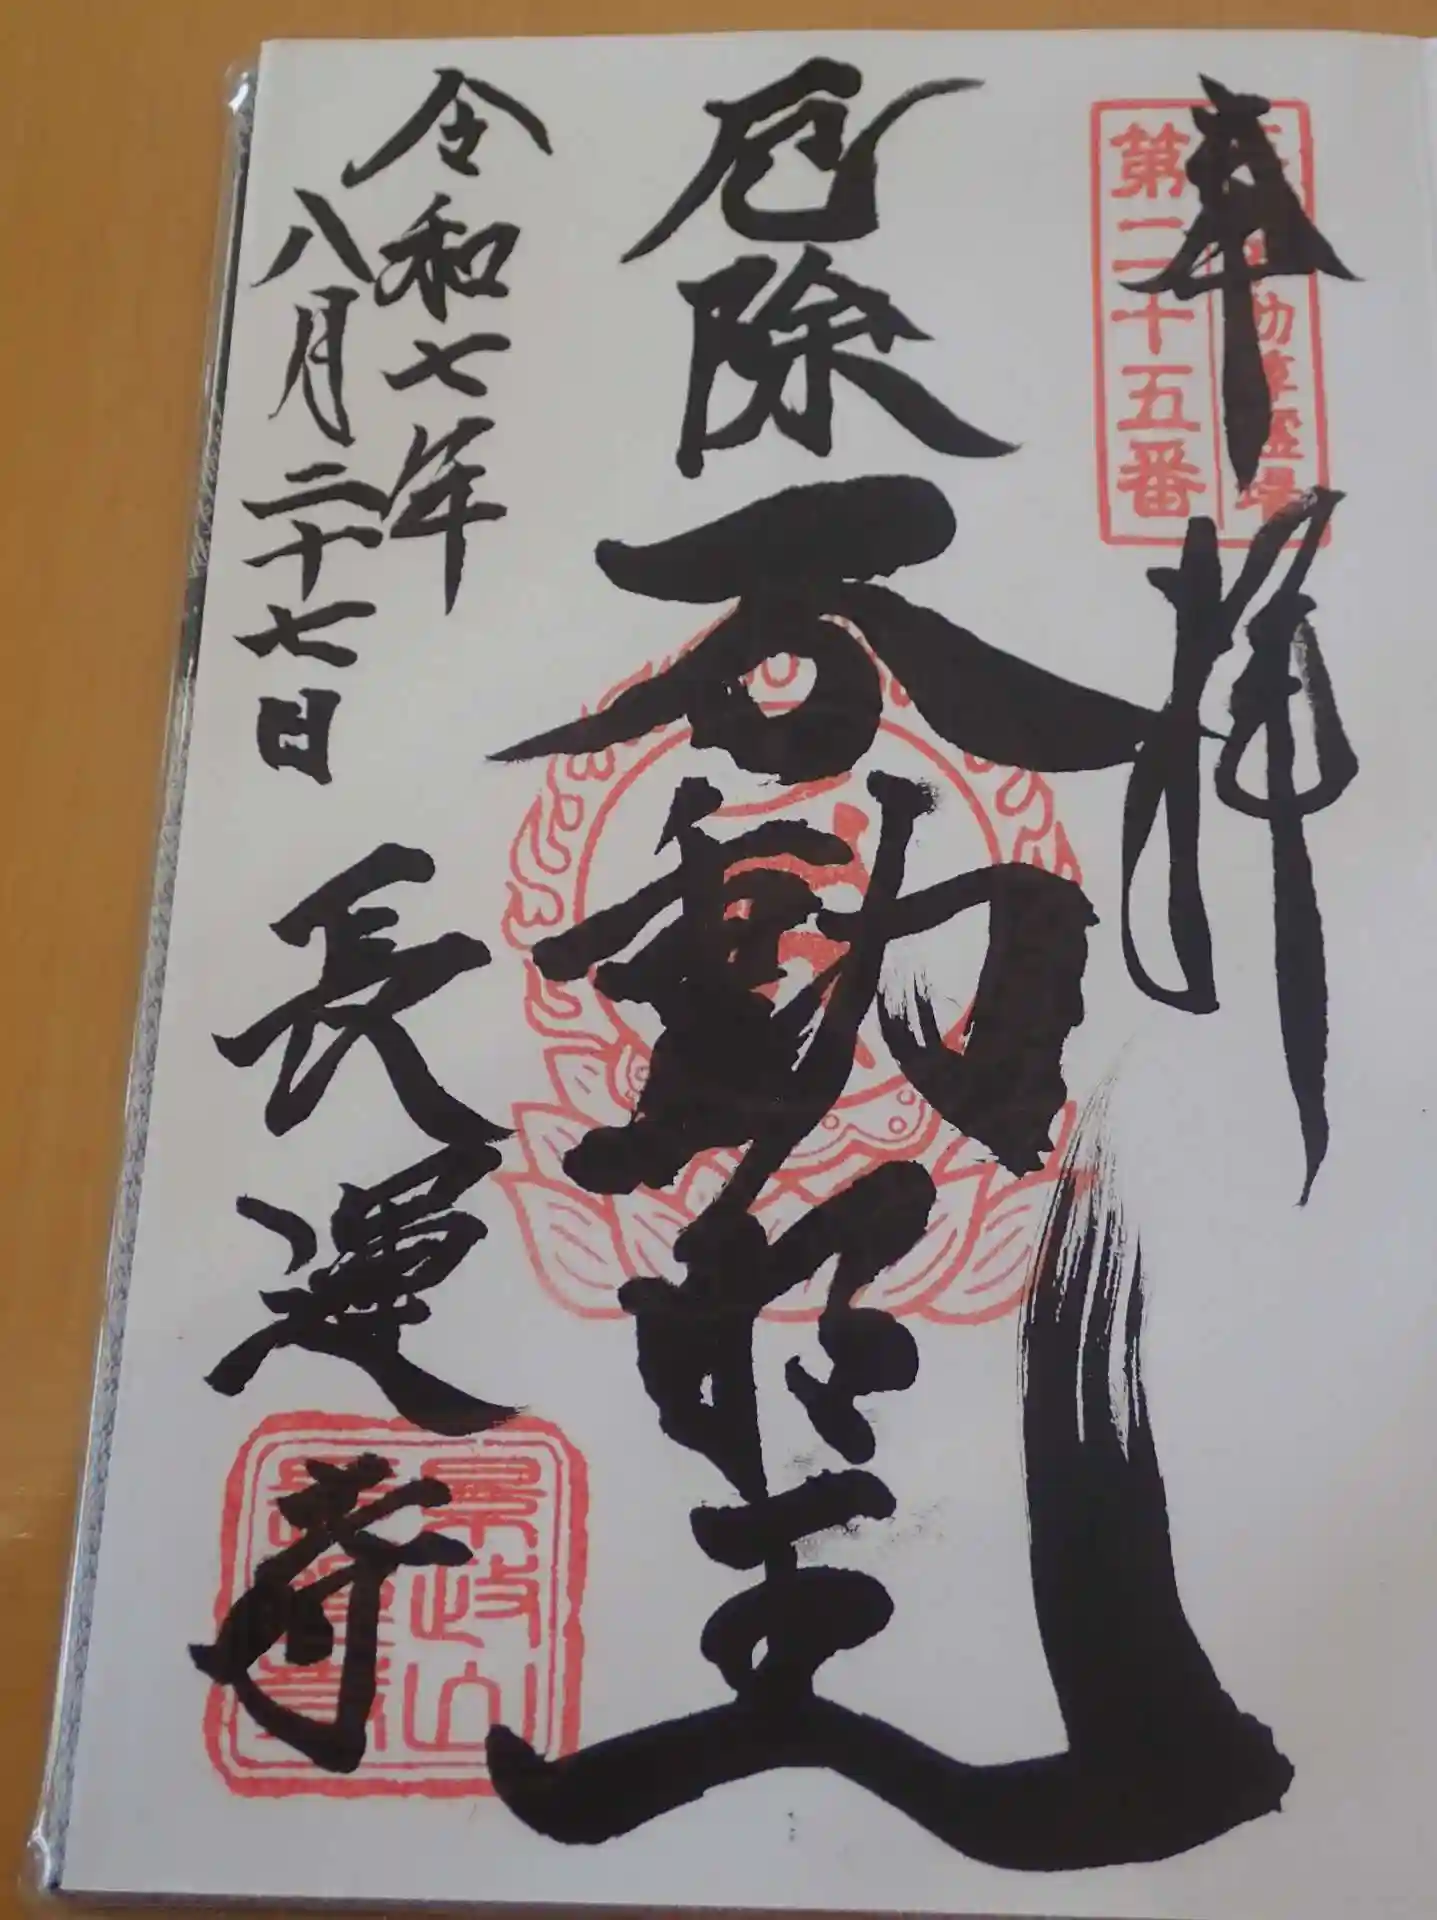 奉拝
第二十五番
厄除不動明王
令和七年
八月二十七日
長運寺
景政山